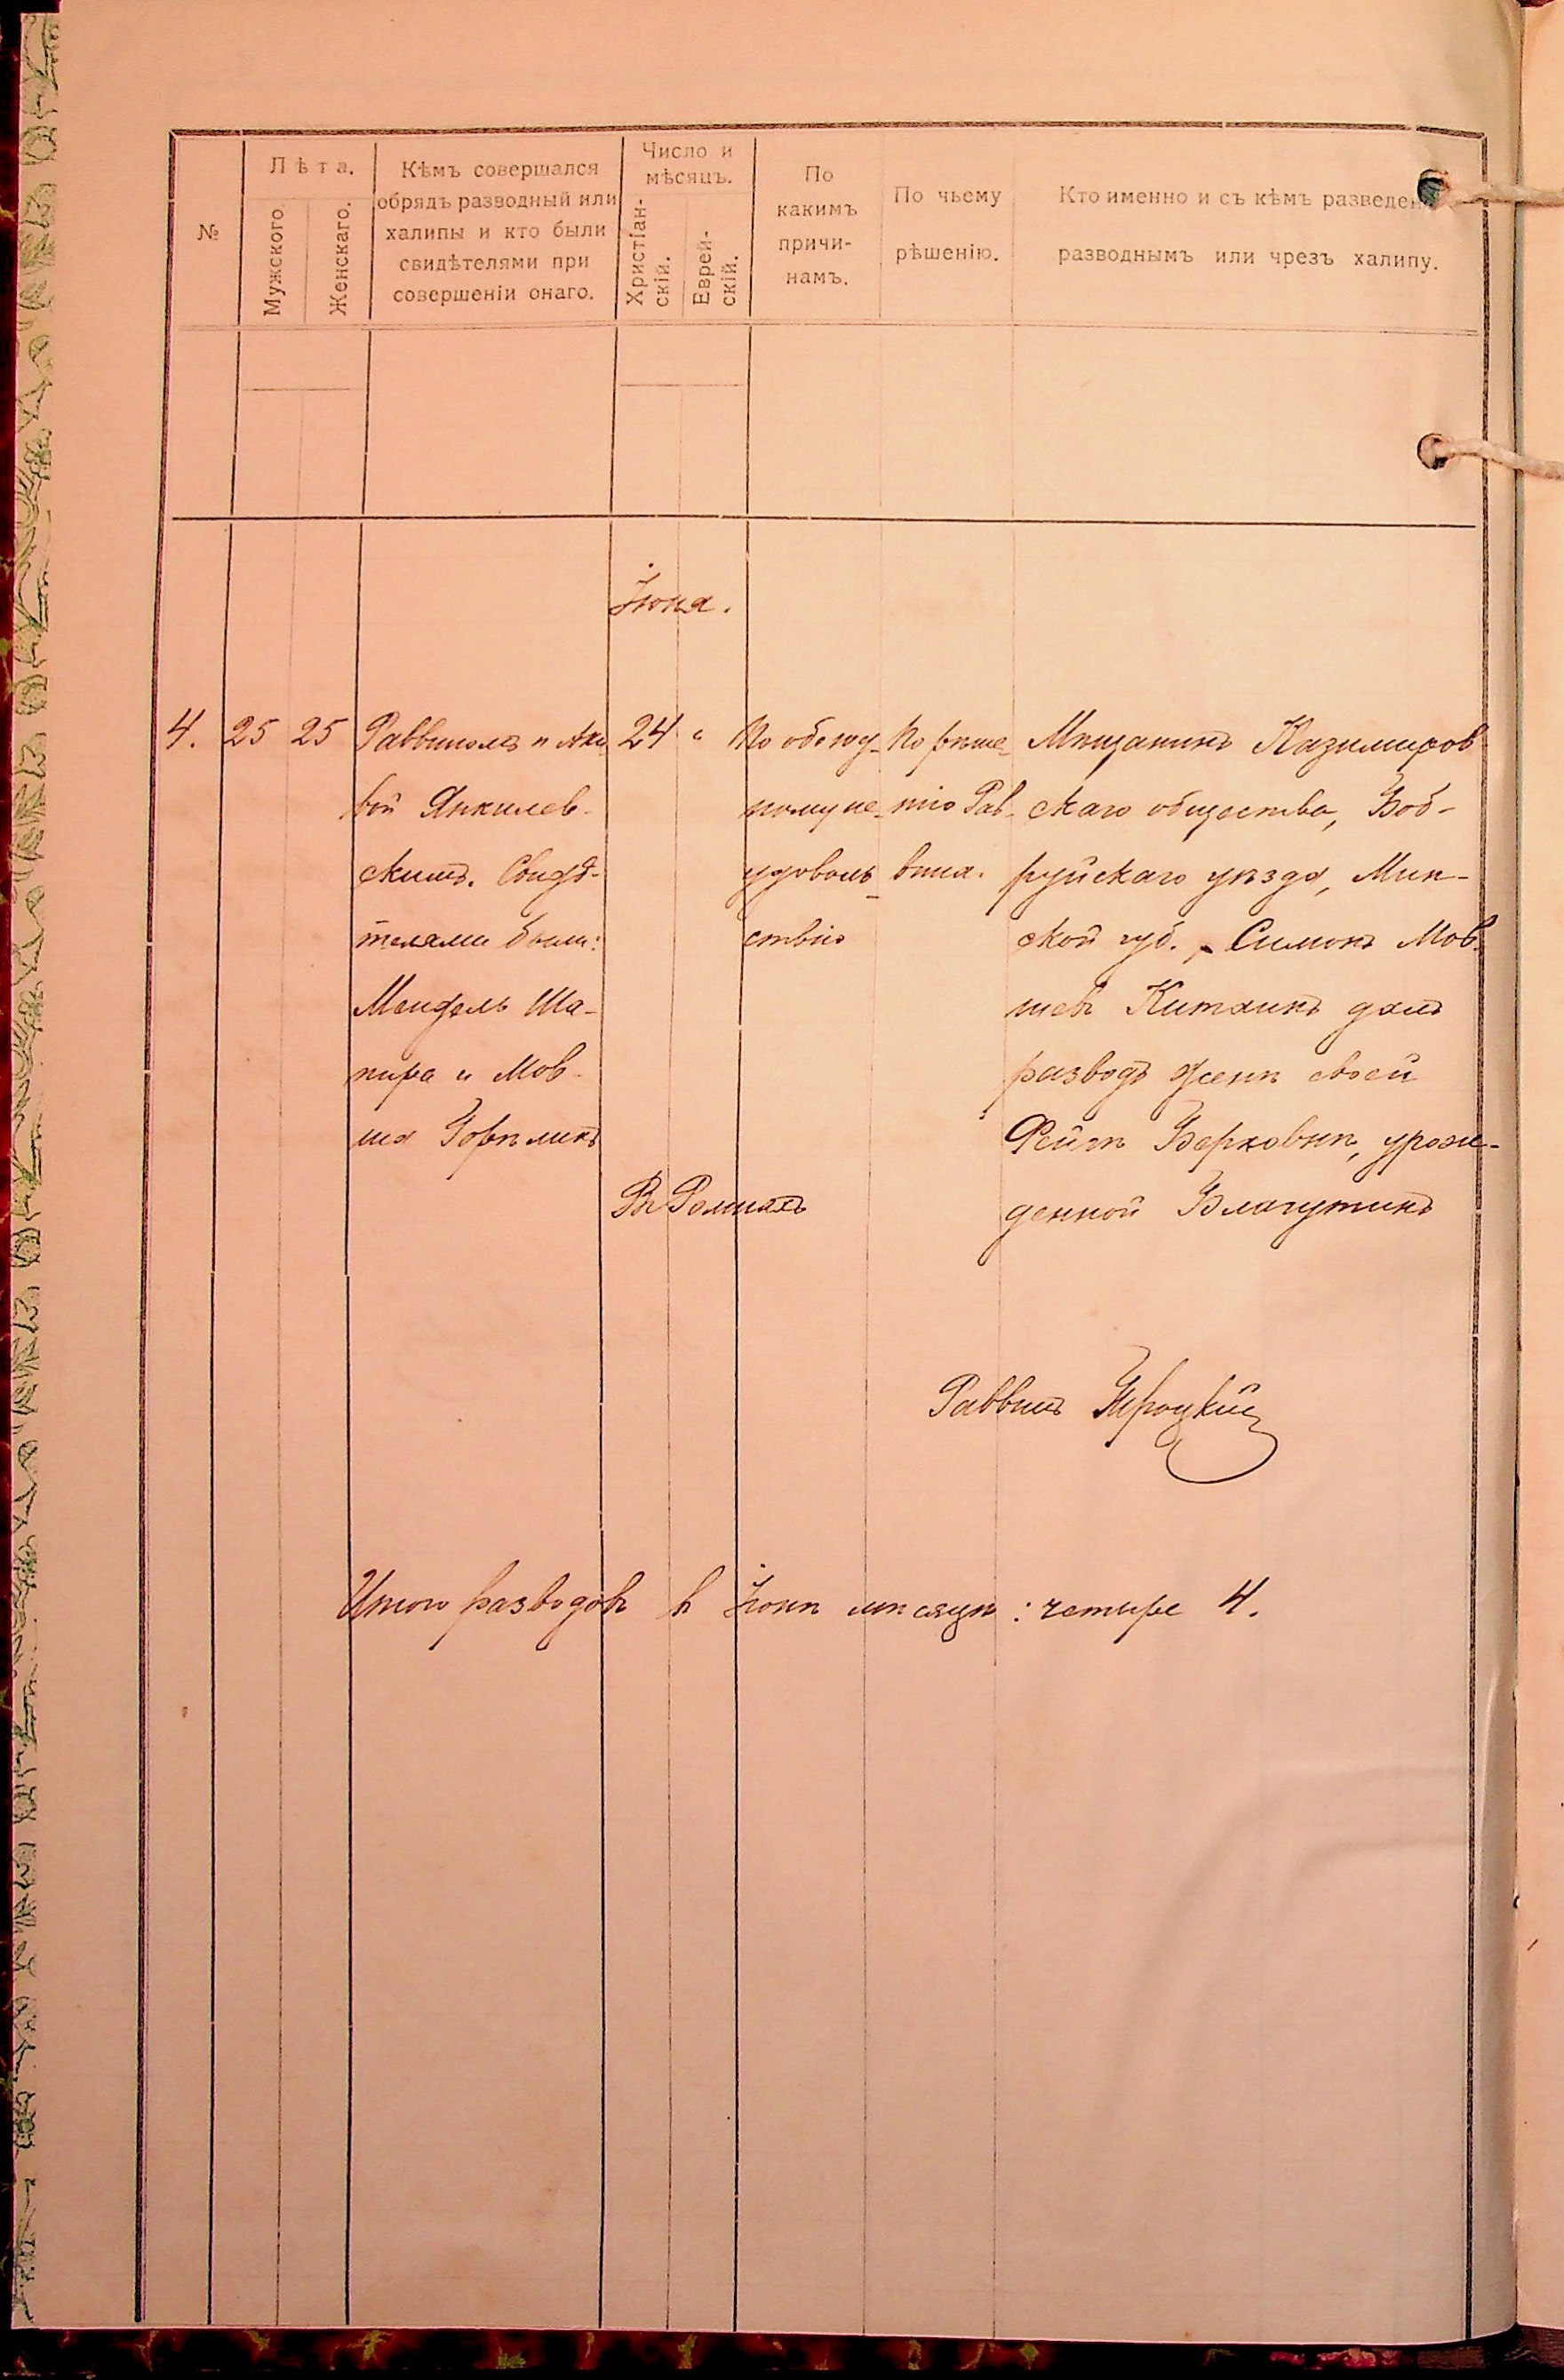 №
Лѣта.
Мужского.
Женскаго.
Кѣмъ совершался
обрядъ разводный или
халипы и кто были
свидѣтелями при
совершеніи онаго.
Число и
мѣсяцъ.
Христіан-
скій.
Еврей-
скій.
По
какимъ
причи-
намъ.
По чьему
рѣшенію.
Кто именно и съ кѣмъ разведенъ
разводнымъ или чрезъ халипу.
Іюня.
4.
25
25
Раввиномъ и Аки
вой Янкилев-
скимъ. Свидѣ-
телями были:
Мендель Ша-
пира и Мов-
ша Горѣликъ
24
"
Въ Ромнахъ
По обоюд-
ному не-
удоволь-
ствію
По рѣше-
нію Рав-
вина.
Мѣщанинъ Казимиров
скаго общества, Боб-
руйскаго уѣзда, Мин-
ской губ., Симонъ Мов-
шевъ Китаинъ далъ
разводъ женѣ своей
Фейгѣ Берковнѣ, урож-
денной Благутинъ
Раввинъ Троцкій
Итого разводовъ въ Іюнѣ мѣсяцѣ: четыре 4.